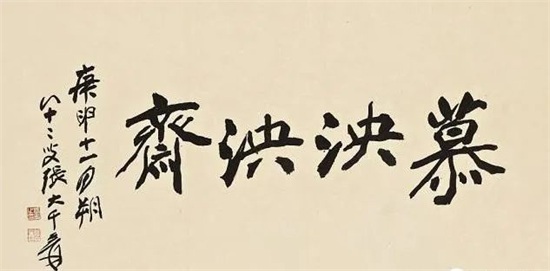 慕泱泱齋
庚申十一月朔
八十二叟張大千爰